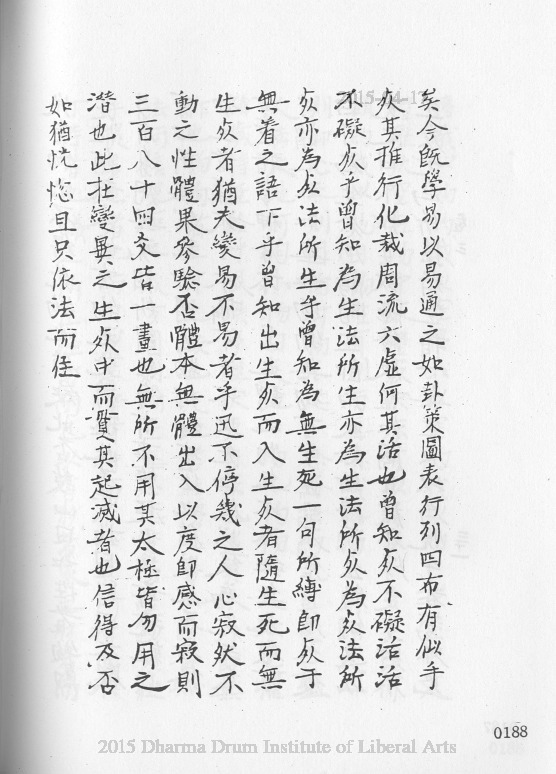 矣今既學易以易通之如卦策圖表行列四布有似乎
死其推行化裁周流六虛何其活也曾知死不礙活活
不礙死乎曾知為生法所生亦為生法所死為死法所
死亦為死法所生乎曾知為無生死一句所縛即死于
無着之語下乎曾知出生死而入生死者隨生死而無
生死者猶夫變易不易者乎迅不停幾之人心寂然不
動之性體果參驗否體本無體出入以度即感而寂則
三百八十四爻皆一畫也無所不用其太極皆勿用之
潛也此在變異之生死中而貫其起滅者也信得及否
如猶恍惚且只依法而住
0188
2015 Dharma Drum Institute of Liberal Arts